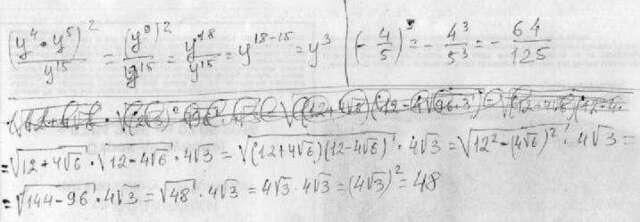 (y⁴ · y⁵)² / y¹⁵ = (y⁹)² / y¹⁵ = y¹⁸ / y¹⁵ = y¹⁸⁻¹⁵ = y³ | (-4/5)³ = - 4³/5³ = - 64/125
= √(12+4√6) · √(12-4√6) · 4√3 = √((12+4√6)(12-4√6)) · 4√3 = √(12² - (4√6)²) · 4√3 =
= √(144-96) · 4√3 = √48 · 4√3 = 4√3 · 4√3 = (4√3)² = 48